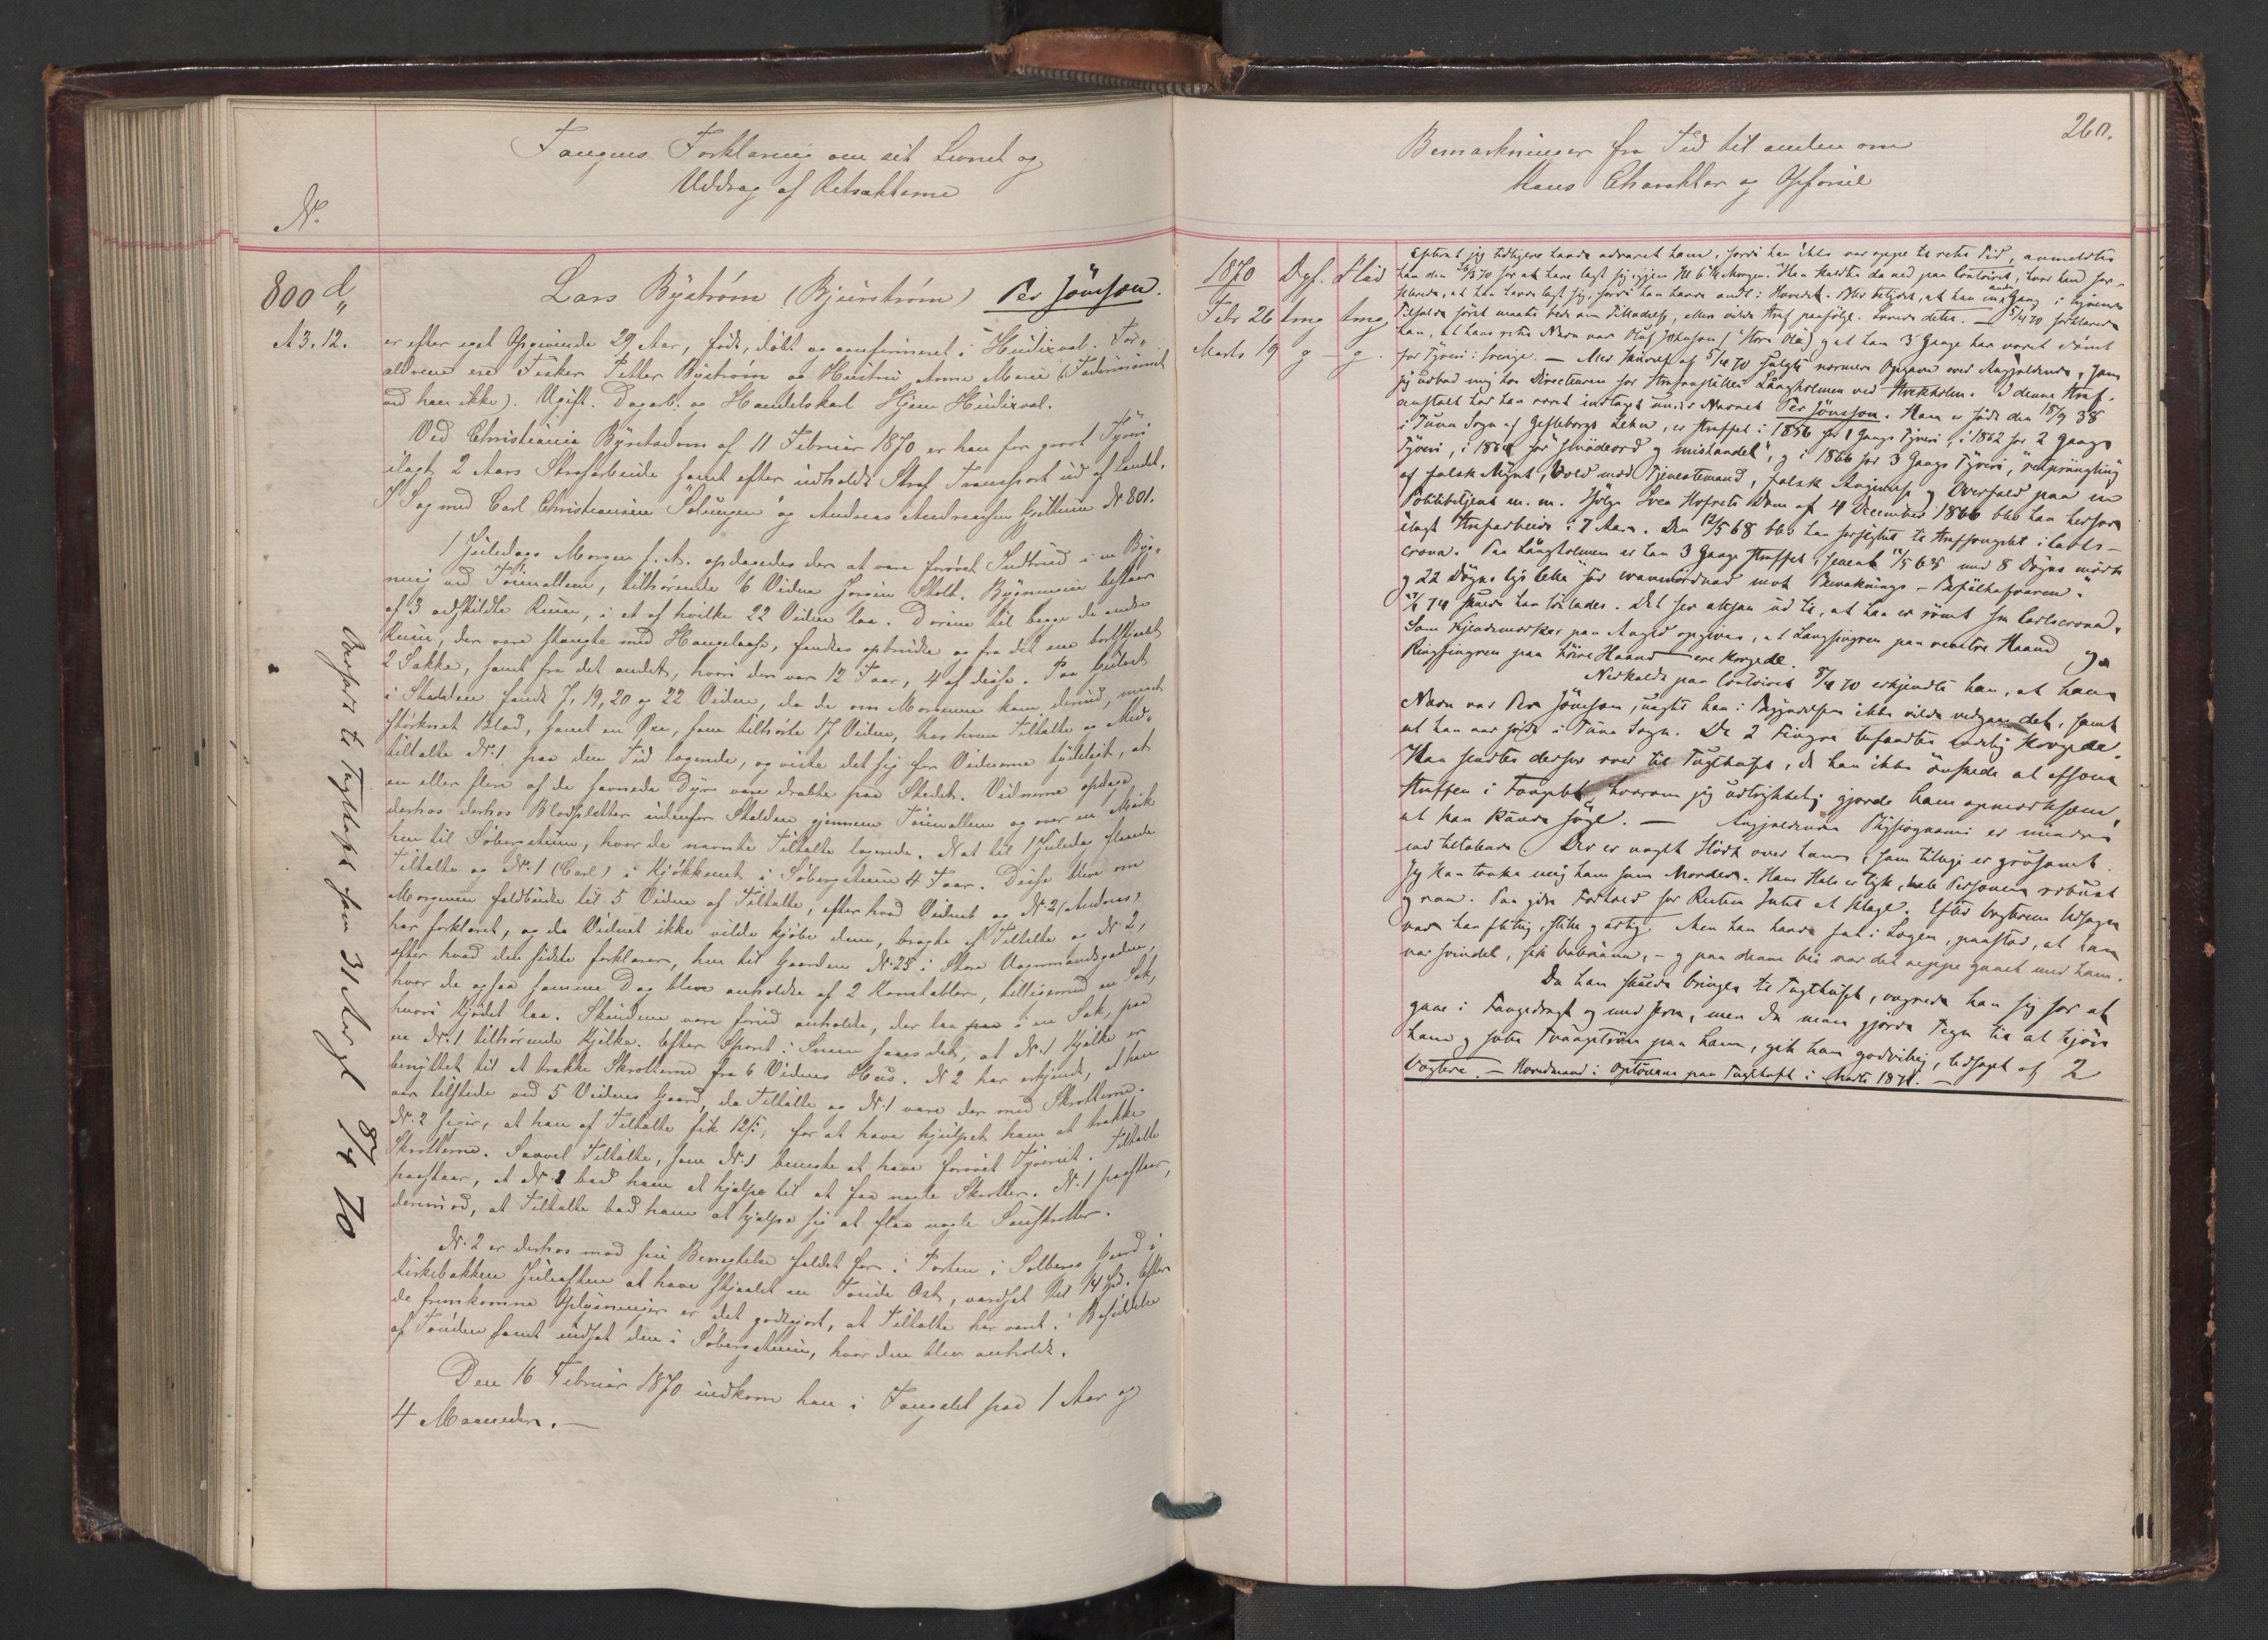 Fangens Forklaring om sit Levnet og
Uddrag af Retsakterne
N.
800 d
A 3. 12.
Lars Byström (Bjurström) Per Jönsson.
er efter eget Opgivende 29 Aar, født, døbt og confirmeret i Hudixval. For-
ældrene ere Fisker Petter Byström og Hustru Anna Maria (Fødenavnet
ved han ikke). Ugift. Dagarb. og Handelskarl Hjem Hudixval.
Ved Christiania Byretsdom af 11 Februar 1870 er han for groot Tyveri
ilagt 2 Aars Strafarbeide samt efter udholdt Straf Transport ud af Landet.
I Sag med Carl Christiansen Solungen og Andreas Andreasen Gjellum N 801.
1 Juledags Morgen f. A. opdagedes der at være forøvet Indbrud i en Byg-
ning ved Tøienallern, tilhørende 6 Vidne Jørgen Stolt. Bygningen bestaar
af 3 adskildte Rum, i et af hvilke 22 Vidne laa. Dørene til begge de andre
Rum, der vare stængte med Hængelaase, fandtes opbrudte og fra det ene bortstjaalet
2 Sække, samt fra det andet, hvori der var 12 Faar, 4 af disse. Paa Gulvet
i Stalden fandt 7, 19, 20 og 22 Vidne, da de om Morgenen kom derind, meget
størknet Blod, samt en Øxe, som tilhørte 17 Vidne, hos hvem Tiltalte og Med-
tiltalte N. 1 paa den Tid logerede, og viste det sig for Vidnerne tydeligt, at
en eller flere af de savnede Dyr vare dræbte paa Stedet. Vidnerne opdage-
de derhos Blodpletter udenfor Stalden gjennem Tøienalleen og over en Mark
hen til Sobergstuen, hvor de nævnte Tiltalte logerede. Nat til 1 Juledag slagtede
Tiltalte og N. 1 (Carl) i Kjøkkenet i Sobergstuen 4 Faar. Disse bleve om
Morgenen faldbudte til 5 Vidne af Tiltalte, efter hvad Vidnet og N. 2 (Andreas)
har forklaret, og da Vidnet ikke vilde kjøbe dem, bragte af Tiltalte og N. 2,
efter hvad den sidste forklarer, hen til Gaarden N. 25 i Store Vognmandsgaden,
hvor de ogsaa samme Dag bleve anholdte af 2 Konstabler, tilligemed en Sæk,
hvori Kjødet laa. Skindene vare forud anholdte, der laa i en Sæk, paa
en N. 1 tilhørende Kjelke. Efter Sporet i Sneen sees det, at N. 1 Kjælke er
benyttet til at trække Skrotterne fra 6 Vidnes Hus. N 2 har erkjendt, at han
var tilstede ved 5 Vidnes Gaard, da Tiltalte og N. 1 vare der med Skrotterne.
N. 2 siger, at han af Tiltalte fik 12 ß, for at have hjulpet ham at trække
Skrotterne. Saavel Tiltalte, som N. 1 benegte at have forøvet Tyveriet. Tiltalte
paastaar, at N. 1 bad ham at hjælpe til at faa nogle Skrotter. N. 1 paastaar,
derimod, at Tiltalte bad ham at hjælpe sig at flaa nogle Saueskrotter.
N. 2 er derhos mod sin Benegtelse fældet for i Porten i Solbergs Gaard i
Lirkebakken Juleaften at have stjaalet en Tønde Ost, værdsat til 14 Spd. Efter
de fremkomne Oplysninger er det godtgjort, at Tiltalte har været i Besiddelse
af Tønden samt indsat den i Sobergstuen, hvor den blev anholdt.
Den 16 Februar 1870 indkom han i Fængslet paa 1 Aar og
4 Maaneder.
Overført til Tugthuset som 31 Aar gl 8/4 70
260.
Bemærkninger fra Tid til anden om
Hans Charakter og Opførsel
1870 Opf. Flid
Febr 26 tmg tmg
Marts 19 g g.
Efterat jeg tidligere havde advaret ham, fordi han ikke var oppe til rette Tid, anmeldtes
han den for at have lagt sig igjen Kl 6 ½ Morgen. Han kaldtes da ned paa Contoiret, hvor han for-
klarede, at han havde lagt sig, fordi han havde ondt i Hovedet. Blev betydet, at han en anden Gang i lignende
Tilfælde først maatte bede om Tilladelse, ellers vilde Straf paafølge. Lovede dette. — 5/4 70 forklarede
han, at hans rette Navn var Olaf Johnson ("Stora Ola") og at han 3 Gange har været dømt
for Tyveri i Sverige. — Med Skrivelse af 5/4 70 fulgte nærmere Opgave over Angjældende, som
jeg udbad mig hos Directeuren for Strafanstalten Långholmen ved Stockholm. I denne Straf-
anstalt har han været indtaget under Navnet Per Jönsson. Han er født den 18/9 38
i Tuna Sogn af Gefleborgs Lehn, er straffet i 1856 for 1 Gangs Tyveri, i 1862 for 2 Gangs
Tyveri, i 1864 for "smädeord og misshandel", og i 1866 for 3 Gangs Tyveri, "utprångling"
af falsk Mynt, Vold mod Tjenestemand, falsk Angivelse og Overfald paa en
Politibetjent m. m. Ifølge Svea Hofrets Dom af 4 December 1866 blev han herfor
ilagt Strafarbeide i 7 Aar. Den 12/5 68 blev han forflyttet til Straffængslet i Carls-
crona. Paa Långholmen er han 3 Gange straffet, senest med 8 Døgns mörk
og 22 Døgns ljus cell för vanvördnad mot Bevaknings-Befälhafvaren".
skulde han löslades. Det ser altsaa ud til, at han er rømt fra Carlscrona.
Som Kjendemærker paa Angjæld opgives, at Langfingeren paa venstre Haand og
Ringfingeren paa høire Haand ere krogede.
Nedkaldt paa Contoiret 8/4 70 erkjendte han, at hans
Navn var Per Jönsson, uagtet han i Begyndelsen ikke vilde vedgaae det, samt
at han var født i Tuna Sogn. De 2 Fingre befandtes endelig krogede.
Han sendtes derfor over til Tugthuset, da han ikke ønskede at afsone
Straffen i Fængslet, hvorom jeg udtrykkelig gjorde ham opmærksom,
at han kunde søge. — Angjældendes Physiognomi er mindre
indtagende. Der er noget blødt over ham, som tillige er grusomt.
Jeg kan tænke mig ham som Morder. Hans Hals er tyk, hele Personen robust
og svær. Paa givne Forhold for Resten Intet at klage. Efter Vogternes Udsagn
var han flittig, stille og artig. Men han havde sat i Logen, paastod, at han
var svindel,
Da han skulde bringes til Tugthuset, vægrede han sig for at
gaae i Fangedragt og med Jern, men da man gjorde Tegn til at kjøre
ham og sætte Tvangstrøie paa ham, gik han godvillig, ledsaget af 2
Vogtere. — Hovedmand i Optøierne paa Tugthuset i Marts 1871. —